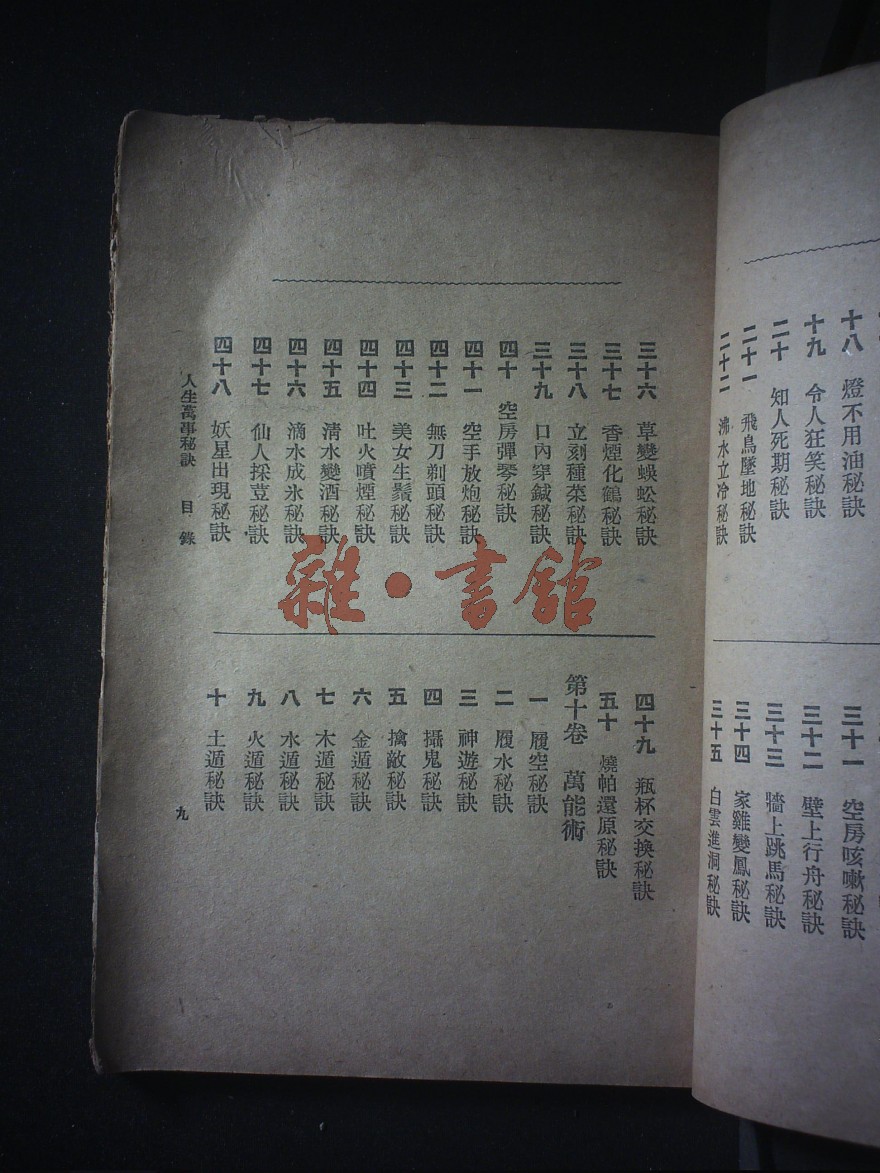 十八 燈不用油秘訣
十九 令人狂笑秘訣
二十 知人死期秘訣
二十一 飛鳥墜地秘訣
二十二 沸水立冷秘訣
三十一 空房咳嗽秘訣
三十二 壁上行舟秘訣
三十三 牆上跳馬秘訣
三十四 家雞變鳳秘訣
三十五 白雲進洞秘訣
三十六 草變蜈蚣秘訣
三十七 香煙化鶴秘訣
三十八 立刻種菜秘訣
三十九 口內穿鍼秘訣
四十 空房彈琴秘訣
四十一 空手放炮秘訣
四十二 無刀剃頭秘訣
四十三 美女生鬚秘訣
四十四 吐火噴煙秘訣
四十五 清水變酒秘訣
四十六 滴水成氷秘訣
四十七 仙人採荳秘訣
四十八 妖星出現秘訣
四十九 瓶杯交換秘訣
五十 燒帕還原秘訣
第十卷 萬能術
一 履空秘訣
二 履水秘訣
三 神遊秘訣
四 攝鬼秘訣
五 擒敵秘訣
六 金遁秘訣
七 木遁秘訣
八 水遁秘訣
九 火遁秘訣
十 土遁秘訣
人生萬事秘訣 目錄
九
雜·書館